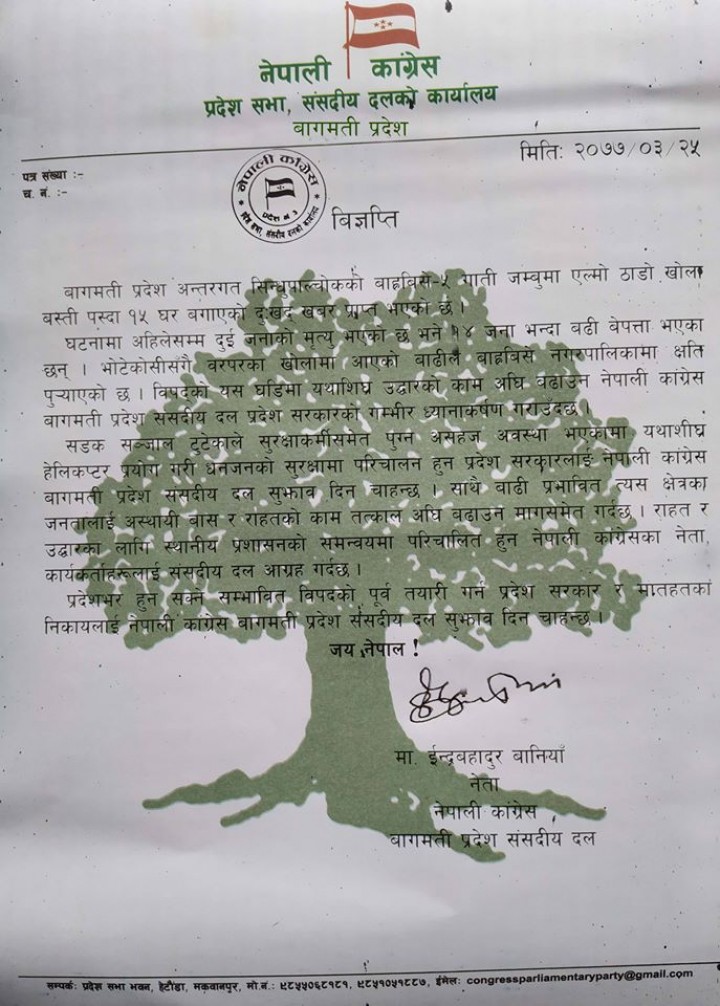 नेपाली कांग्रेस
प्रदेश सभा, संसदीय दलको कार्यालय
बागमती प्रदेश
मितिः २०७७/०३/२५
पत्र संख्या :-
च. नं. :-
नेपाली कांग्रेस
प्रदेश नं. ३
प्रदेश सभा, संसदीय दलको कार्यालय
विज्ञप्ति
बागमती प्रदेश अन्तरगत सिन्धुपाल्चोकको बाह्रविसे-५ गाती जम्बुमा एल्मो ठाडो खोला
बस्ती पस्दा १५ घर बगाएको दुःखद खबर प्राप्त भएको छ ।
घटनामा अहिलेसम्म दुई जनाको मृत्यु भएको छ भने १४ जना भन्दा बढी बेपत्ता भएका
छन् । भोटेकोसीसँगै वरपरका खोलामा आएको बाढीले बाह्रविसे नगरपालिकामा क्षति
पुऱ्याएको छ । विपदको यस घडिमा यथाशिघ्र उद्धारको काम अघि बढाउन नेपाली कांग्रेस
बागमती प्रदेश संसदीय दल प्रदेश सरकारको गम्भीर ध्यानाकर्षण गराउँदछ ।
सडक सञ्जाल टुटेकाले सुरक्षाकर्मीसमेत पुग्न असहज अवस्था भएकोमा यथाशीघ्र
हेलिकप्टर प्रयोग गरी धनजनको सुरक्षामा परिचालन हुन प्रदेश सरकारलाई नेपाली कांग्रेस
बागमती प्रदेश संसदीय दल सुझाव दिन चाहन्छ । साथै बाढी प्रभावित त्यस क्षेत्रका
जनतालाई अस्थायी बास र राहतको काम तत्काल अघि बढाउन मागसमेत गर्दछ । राहत र
उद्धारका लागि स्थानीय प्रशासनको समन्वयमा परिचालित हुन नेपाली कांग्रेसका नेता,
कार्यकर्ताहरूलाई संसदीय दल आग्रह गर्दछ ।
प्रदेशभर हुन सक्ने सम्भावित विपदको पूर्व तयारी गर्न प्रदेश सरकार र मातहतका
निकायलाई नेपाली कांग्रेस बागमती प्रदेश संसदीय दल सुझाव दिन चाहन्छ ।
जय नेपाल !
मा. ईन्द्रबहादुर बानियाँ
नेता
नेपाली कांग्रेस
बागमती प्रदेश संसदीय दल
सम्पर्कः प्रदेश सभा भवन, हेटौंडा, मकवानपुर, मो.नं.: ९८५५०६८१८१, ९८५१०५१८८७, ईमेलः congressparliamentaryparty@gmail.com